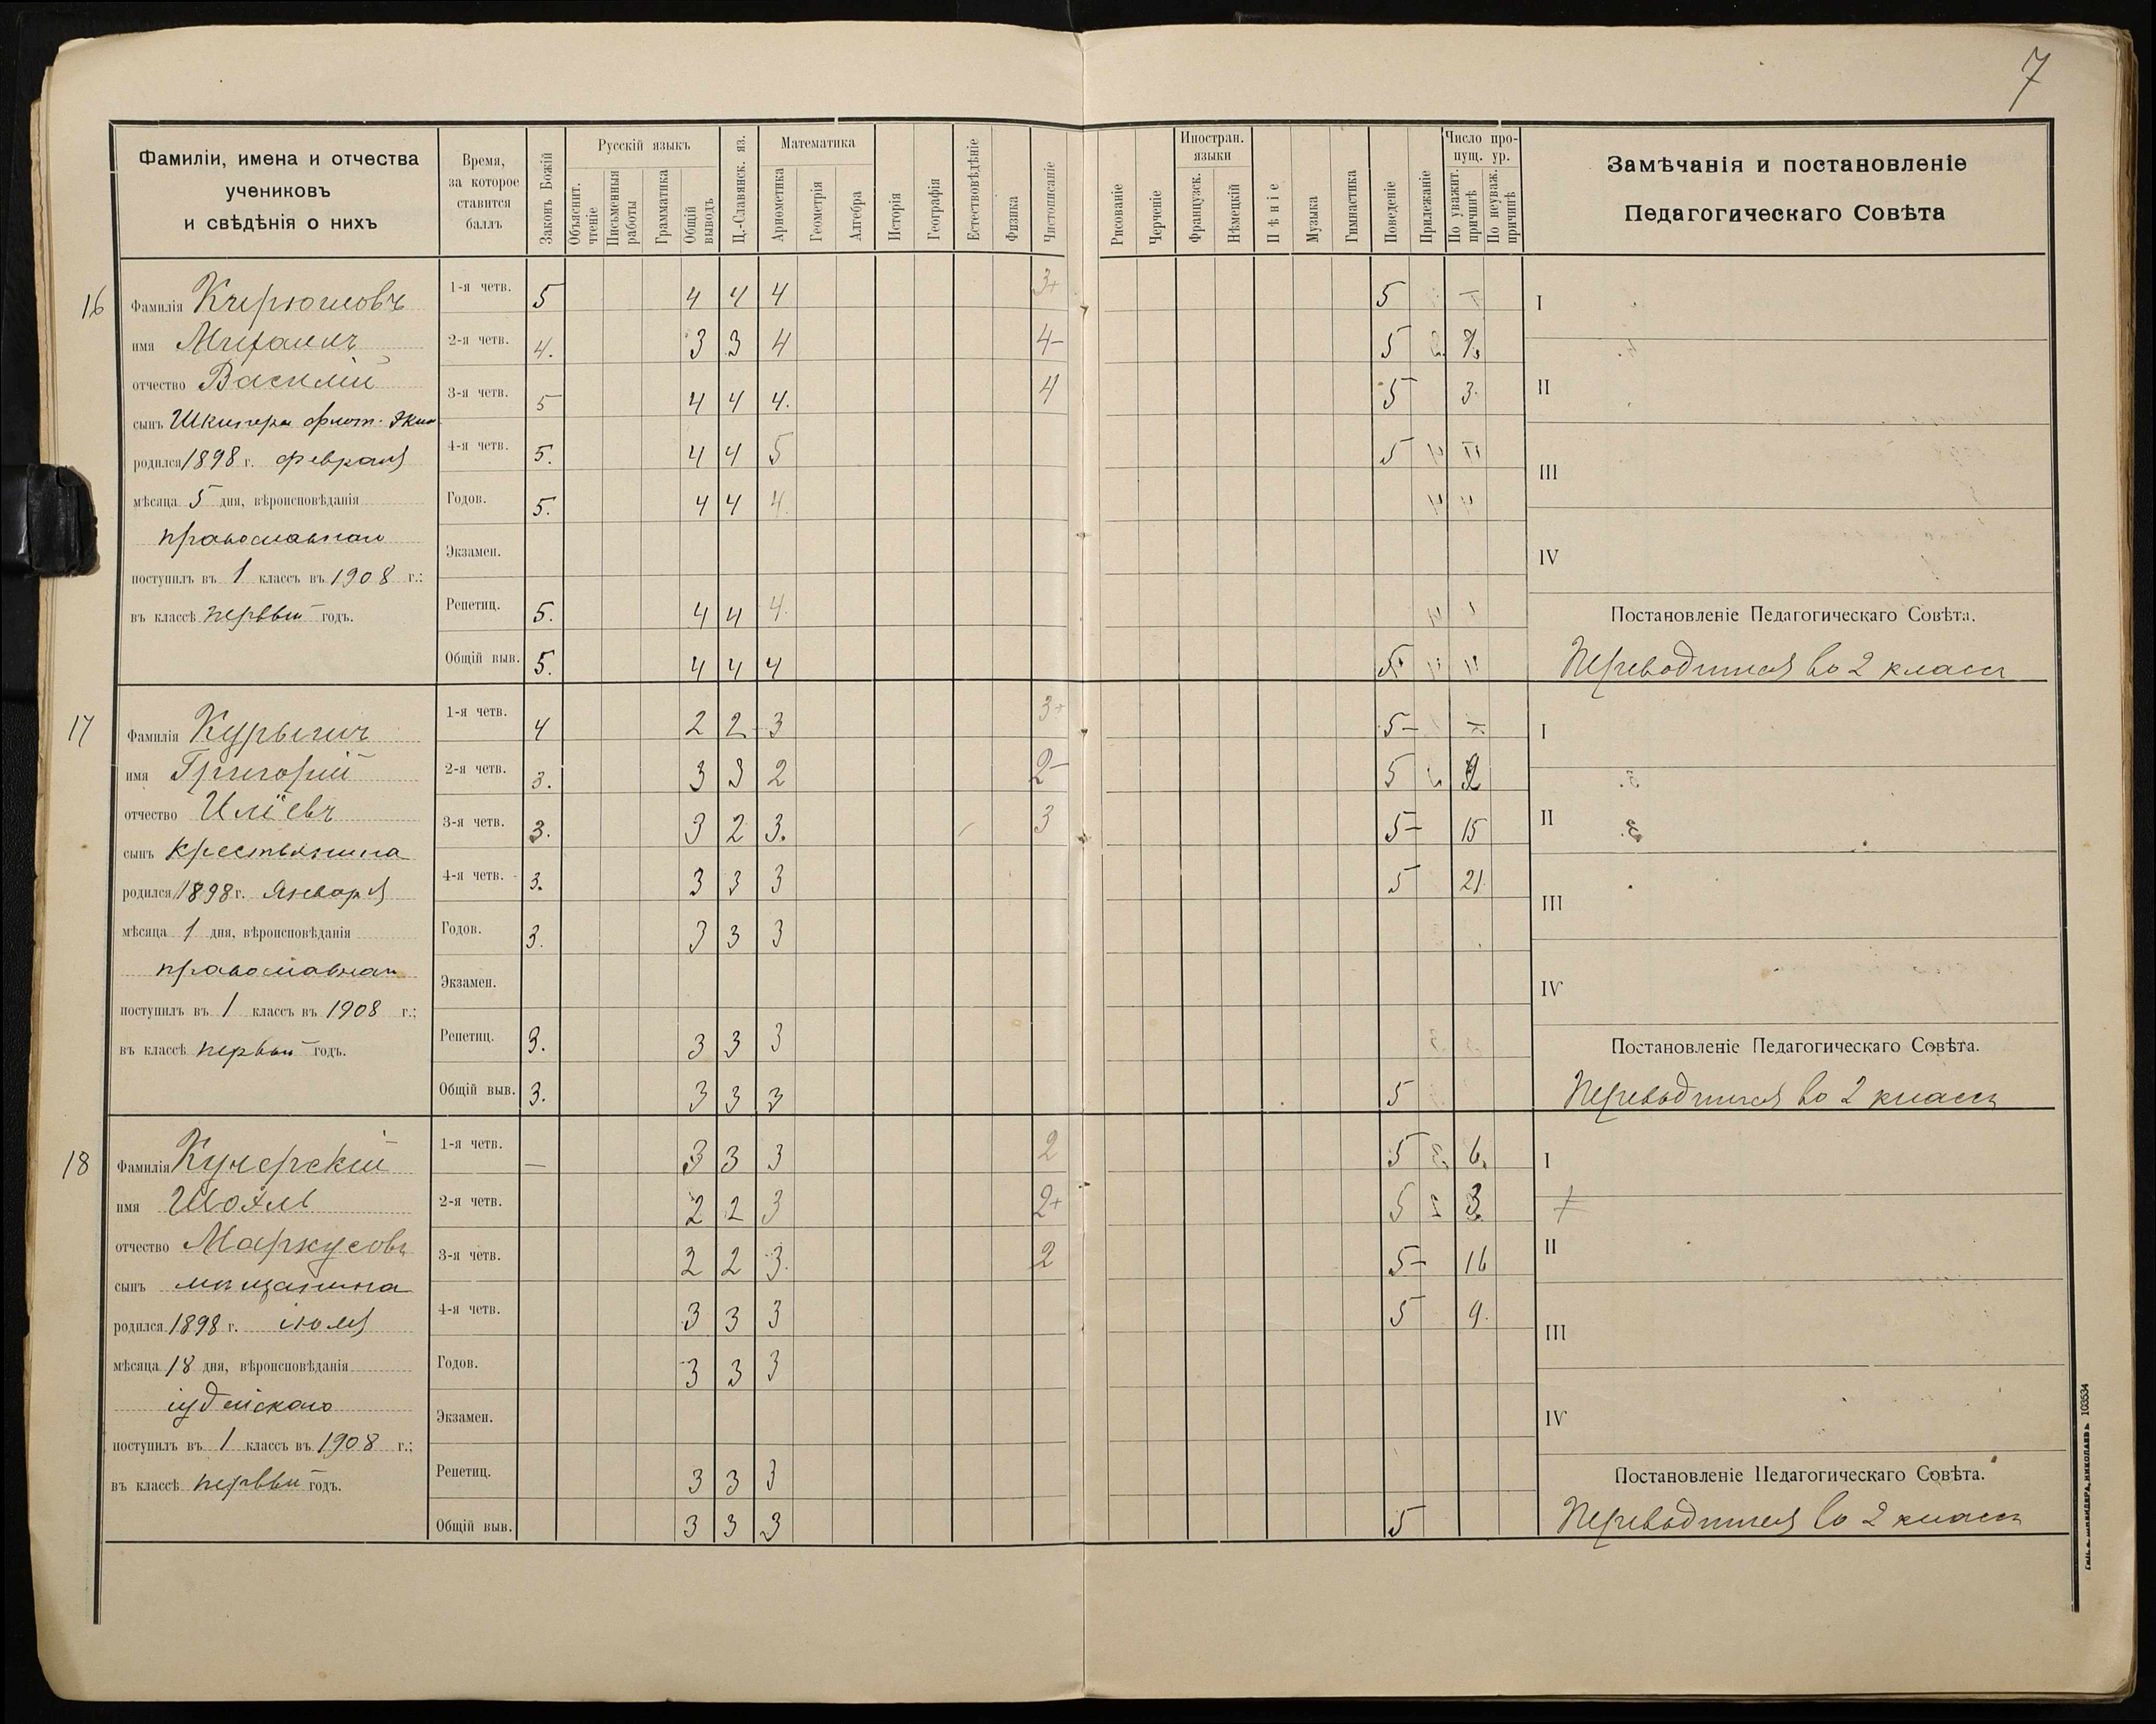 7
Фамиліи, имена и отчества
учениковъ
и свѣдѣнія о нихъ
Время,
за которое
ставится
баллъ
Законъ Божій
Русскій языкъ
Объяснит. чтеніе
Письменныя работы
Грамматика
Общій выводъ
Ц.-Славянск. яз.
Математика
Ариѳметика
Геометрія
Алгебра
Исторія
Географія
Естествовѣдѣніе
Физика
Чистописаніе
Рисованіе
Черченіе
Иностран. языки
Французск.
Нѣмецкій
Пѣніе
Музыка
Гимнастика
Поведеніе
Прилежаніе
Число пропущ. ур.
По уважит. причинѣ
По неуваж. причинѣ
Замѣчанія и постановленіе
Педагогическаго Совѣта
16
Фамилія
имя Михаилъ
отчество Василій
сынъ Шкипера флот. Экип
родился 1898 г. февраля
мѣсяца 5 дня, вѣроисповѣданія
православнаго
поступилъ въ 1 классъ въ 1908 г.:
въ классѣ первый годъ.
1-я четв. 5 4 4 4 3+ 5
2-я четв. 4. 3 3 4 4- 5
3-я четв. 5 4 4 4. 4 5 3.
4-я четв. 5. 4 4 5 5
Годов. 5. 4 4 4.
Экзамен.
Репетиц. 5. 4 4 4.
Общій выв. 5. 4 4 4 5
I
II
III
IV
Постановленіе Педагогическаго Совѣта.
Переводится во 2 классъ
17
Фамилія Курыгинъ
имя Григорій
отчество Иліевъ
сынъ крестьянина
родился 1898 г. Января
мѣсяца 1 дня, вѣроисповѣданія
православнаго
поступилъ въ 1 классъ въ 1908 г.;
въ классѣ первый годъ.
1-я четв. 4 2 2 3 3+ 5-
2-я четв. 3. 3 3 2 2- 5
3-я четв. 3. 3 2 3. 3 5- 15
4-я четв. 3. 3 3 3 5 21
Годов. 3. 3 3 3
Экзамен.
Репетиц. 3. 3 3 3
Общій выв. 3. 3 3 3 5
I
II
III
IV
Постановленіе Педагогическаго Совѣта.
Переводится во 2 классъ
18
Фамилія Кучерскій
имя Шоэль
отчество Маркусовъ
сынъ мѣщанина
родился 1898 г. іюля
мѣсяца 18 дня, вѣроисповѣданія
іудейскаго
поступилъ въ 1 классъ въ 1908 г.;
въ классѣ первый годъ.
1-я четв. — 3 3 3 2 5 6.
2-я четв. 2 2 3 2+ 5 3.
3-я четв. 2 2 3. 2 5- 16
4-я четв. 3 3 3 5 9.
Годов. 3 3 3
Экзамен.
Репетиц. 3 3 3
Общій выв. 3 3 3 5
I
II
III
IV
Постановленіе Педагогическаго Совѣта.
Переводится во 2 классъ
НИКОЛАЕВЪ 103534